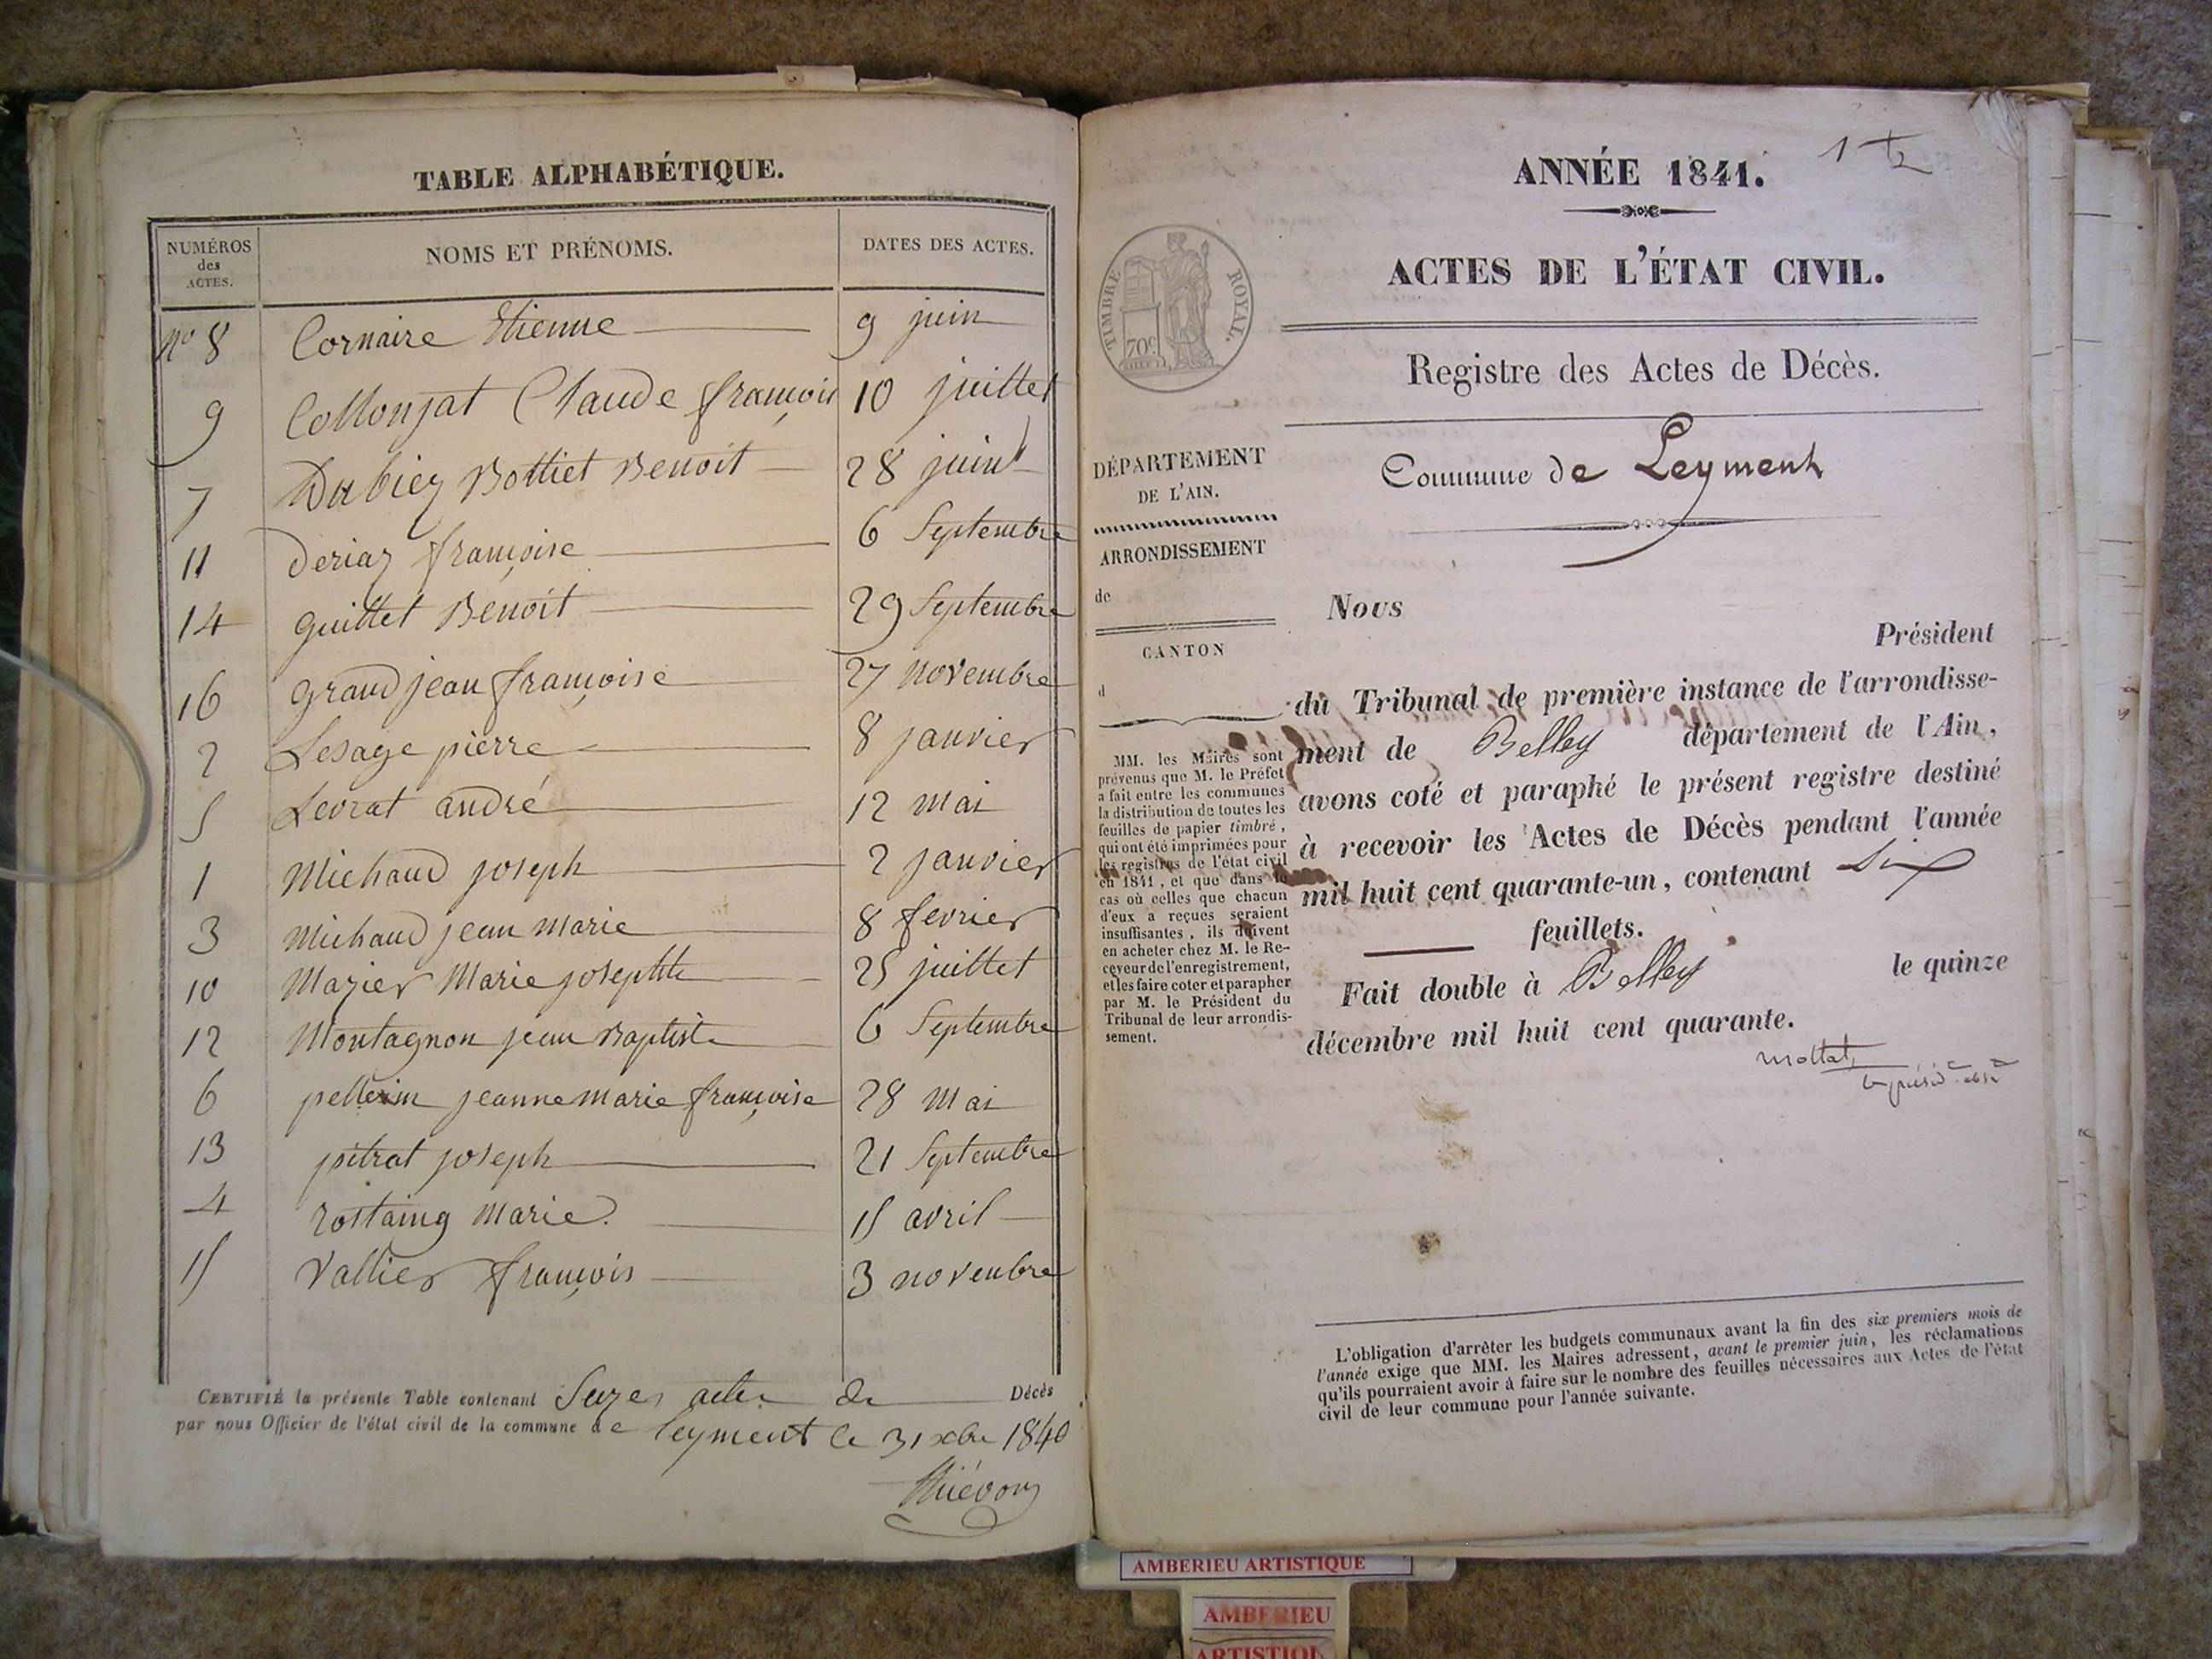 TABLE ALPHABÉTIQUE.
NUMÉROS des ACTES. NOMS ET PRÉNOMS. DATES DES ACTES.
No 8 Cornaire Etienne 9 juin
9 Collonjat Claude françois 10 juillet
7 Dubiez Bottiet Benoit 28 juin
11 Deriaz françoise 6 Septembre
14 Guillet Benoit 29 Septembre
16 Grandjean françoise 27 novembre
2 Lesage pierre 8 janvier
5 Levrat andré 12 mai
1 Michaud joseph 2 janvier
3 Michaud jean marie 8 fevrier
10 Mazier Marie josephte 25 juillet
12 Montagnon jean Baptiste 6 Septembre
6 pellerin jeanne marie françoise 28 mai
13 pitrat joseph 21 Septembre
4 rostaing marie. 15 avril
15 Vallier françois 3 novembre
CERTIFIÉ la présente Table contenant Seize actes de Décès
par nous Officier de l'état civil de la commune de leyment le 31 xbre 1840
ANNÉE 1841.
ACTES DE L'ÉTAT CIVIL.
TIMBRE ROYAL.
70c
Registre des Actes de Décès.
Commune de Leyment
DÉPARTEMENT
DE L'AIN.
ARRONDISSEMENT
de
CANTON
d
MM. les Maires sont
prévenus que M. le Préfet
a fait entre les communes
la distribution de toutes les
feuilles de papier timbré,
qui ont été imprimées pour
les registres de l'état civil
en 1841, et que dans le
cas où celles que chacun
d'eux a reçues seraient
insuffisantes, ils doivent
en acheter chez M. le Re-
ceveur de l'enregistrement,
et les faire coter et parapher
par M. le Président du
Tribunal de leur arrondis-
sement.
Nous
Président
du Tribunal de première instance de l'arrondisse-
ment de Belley département de l'Ain,
avons coté et paraphé le présent registre destiné
à recevoir les Actes de Décès pendant l'année
mil huit cent quarante-un, contenant Six
feuillets.
Fait double à Belley le quinze
décembre mil huit cent quarante.
L'obligation d'arrêter les budgets communaux avant la fin des six premiers mois de
l'année exige que MM. les Maires adressent, avant le premier juin, les réclamations
qu'ils pourraient avoir à faire sur le nombre des feuilles nécessaires aux Actes de l'état
civil de leur commune pour l'année suivante.
AMBERIEU ARTISTIQUE
AMBERIEU
ARTISTIQU